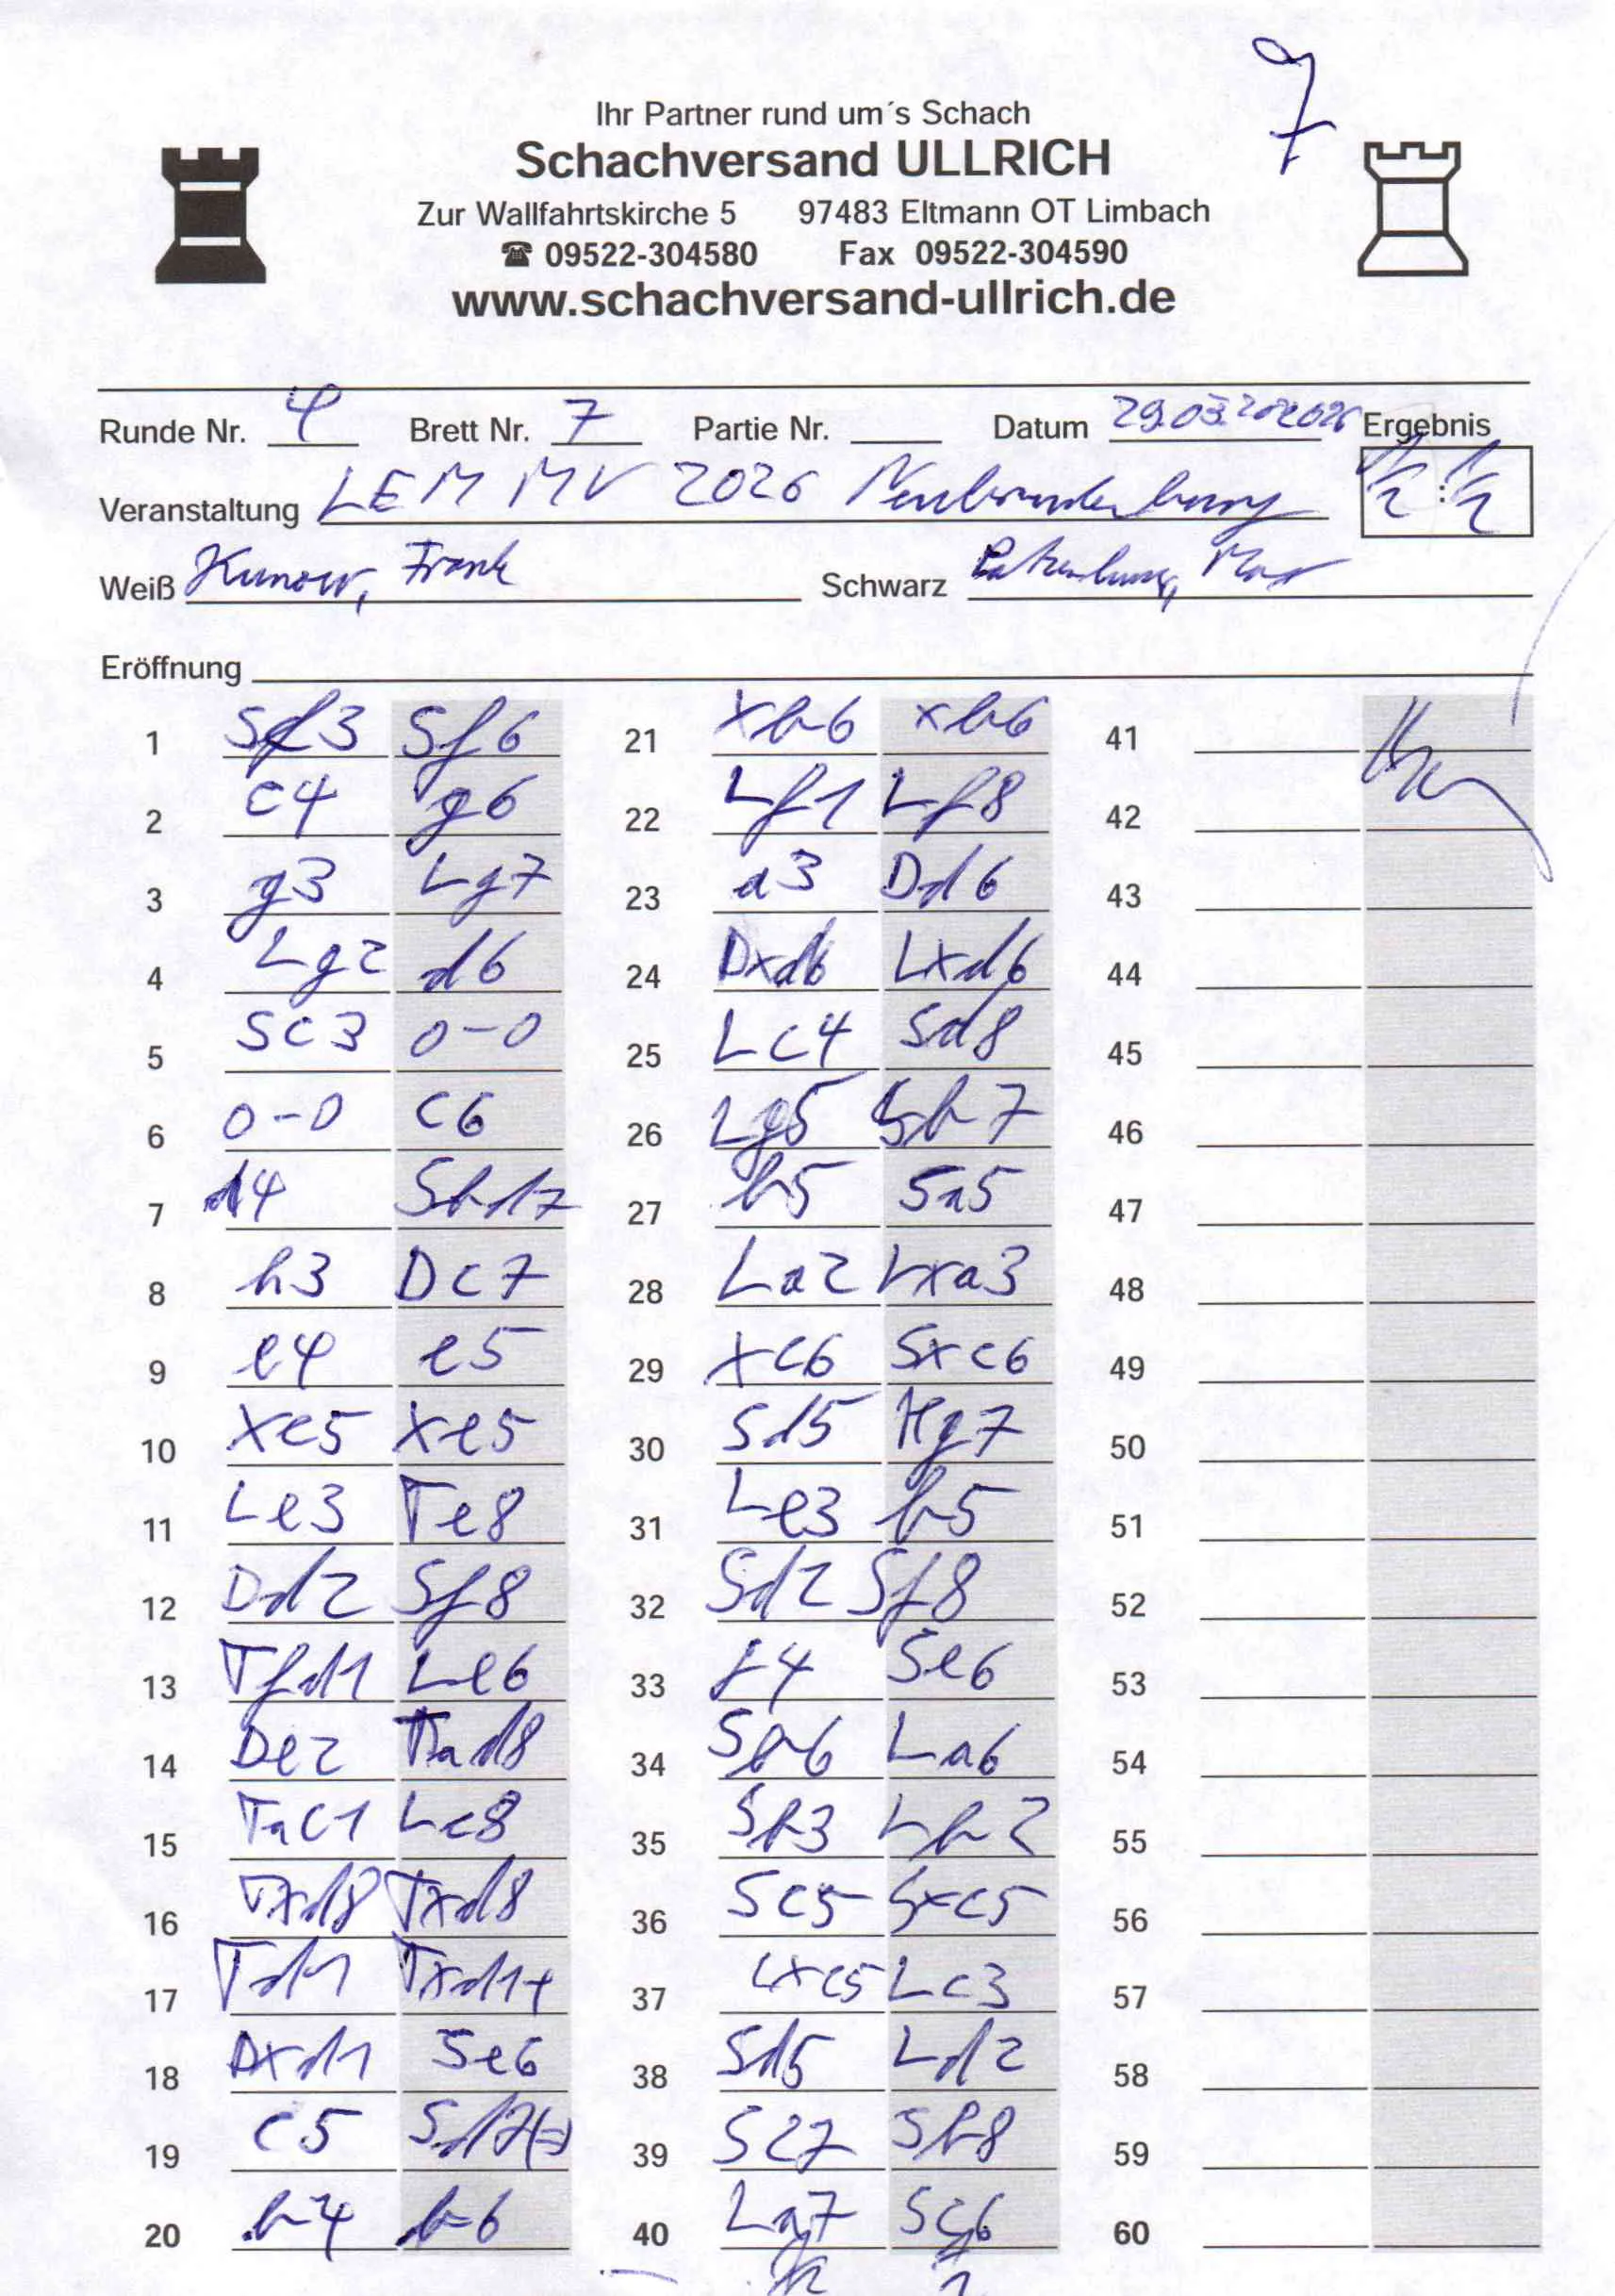 7
Ihr Partner rund um´s Schach
Schachversand ULLRICH
Zur Wallfahrtskirche 5 97483 Eltmann OT Limbach
☎ 09522-304580 Fax 09522-304590
www.schachversand-ullrich.de
Runde Nr. 4 Brett Nr. 7 Partie Nr. Datum 29.03. 2026 Ergebnis
Veranstaltung LEM MV 2026 Neubrandenburg ½ : ½
Weiß Kunow, Frank Schwarz
Eröffnung
1 Sf3 Sf6 21 xb6 xb6 41
2 c4 g6 22 Lf1 Lf8 42
3 g3 Lg7 23 a3 Dd6 43
4 Lg2 d6 24 Dxd6 Lxd6 44
5 Sc3 0-0 25 Lc4 Sd8 45
6 0-0 c6 26 Lg5 Sb7 46
7 d4 Sbd7 27 b5 Sa5 47
8 h3 Dc7 28 La2 Lxa3 48
9 e4 e5 29 xc6 Sxc6 49
10 xe5 xe5 30 Sd5 Kg7 50
11 Le3 Te8 31 Le3 b5 51
12 Dd2 Sf8 32 Sd2 Sf8 52
13 Tfd1 Le6 33 f4 Se6 53
14 De2 Tad8 34 Sb6 La6 54
15 Tac1 Lc8 35 Sb3 Lb2 55
16 Txd8 Txd8 36 Sc5 Sxc5 56
17 Td1 Txd1+ 37 Lxc5 Lc3 57
18 Dxd1 Se6 38 Sd5 Ld2 58
19 c5 Sd7(=) 39 Sc7 Sb8 59
20 b4 b6 40 La7 Sc6 60